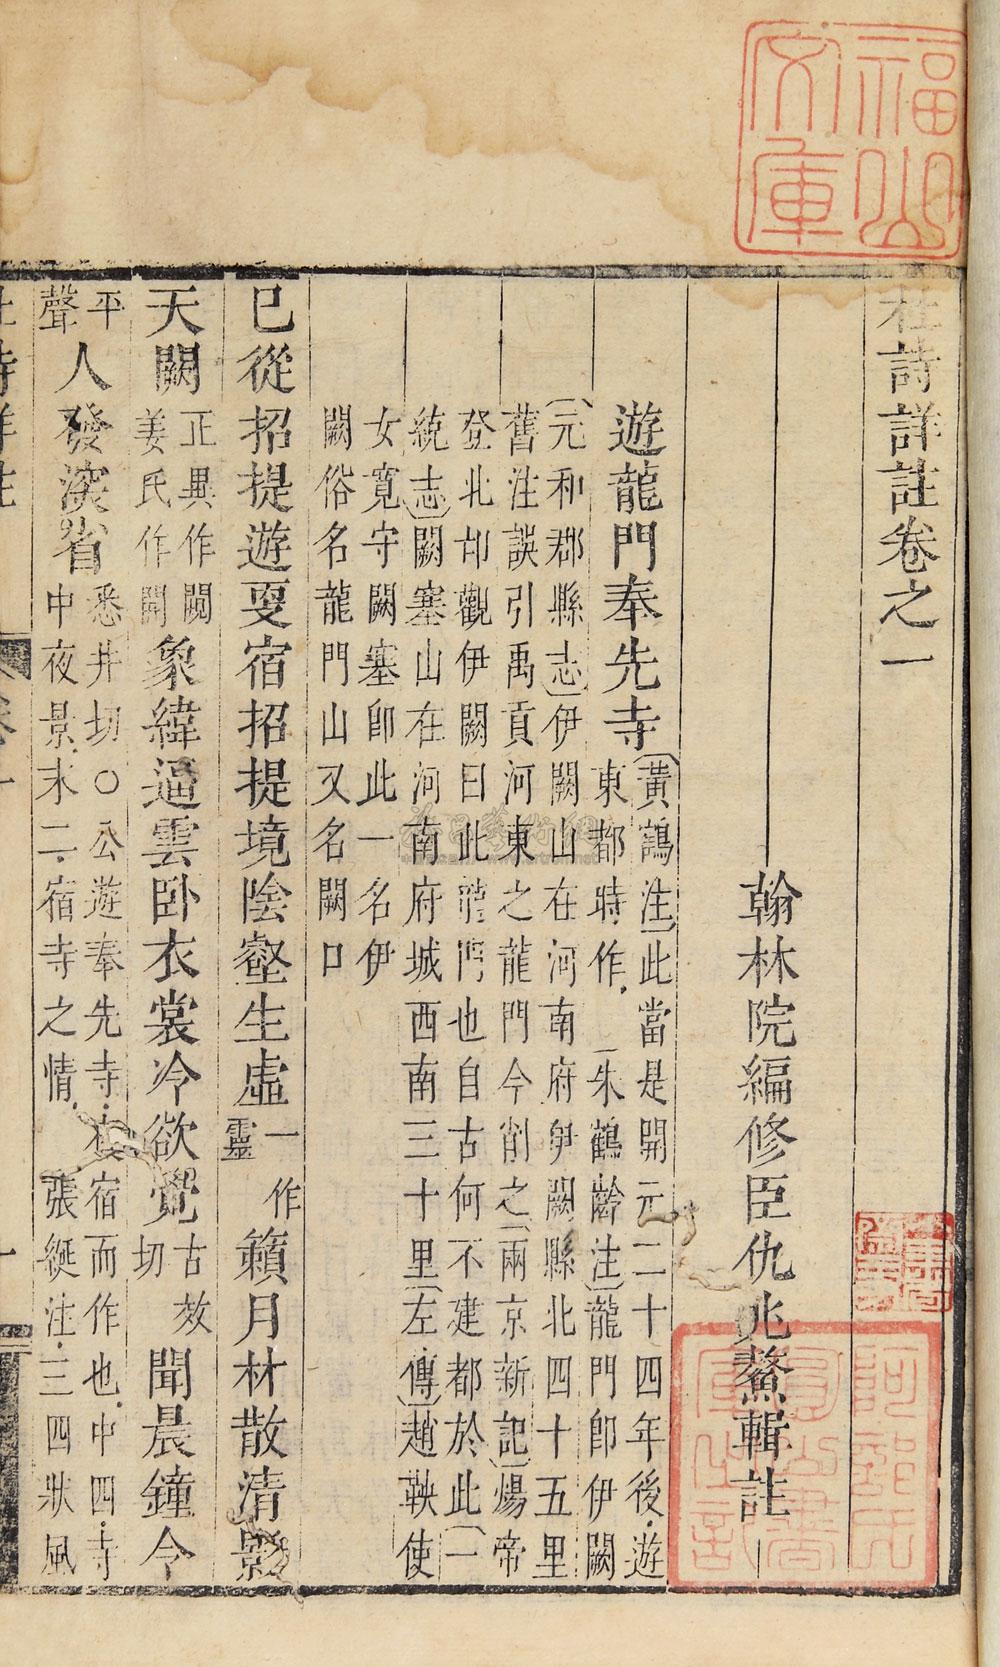 福山
文庫
杜詩詳註卷之一
翰林院編修臣仇兆鰲輯註
遊龍門奉先寺
〔黃鶴注〕此當是開元二十四年後遊
東都時作
朱鶴齡注〕龍門即伊闕
〔元和郡縣志〕伊闕山在河南府伊闕縣北四十五里
舊注誤引禹貢河東之龍門今削之〔兩京新記〕煬帝
登北邙觀伊闕曰此龍門也自古何不建都於此〔一
統志〕闕塞山在河南府城西南三十里〔左傳〕趙鞅使
女寬守闕塞即此一名伊
闕俗名龍門山又名闕口
已從招提遊更宿招提境陰壑生虛
一作
靈
籟月林散清影
天闕
正異作閱
姜氏作開
象緯逼雲臥衣裳冷欲覺
古效
切
聞晨鐘令
平
聲
人發深省
悉井切○公遊奉先寺夜宿而作也中四寺
中夜景末二宿寺之情張綖注三四狀風